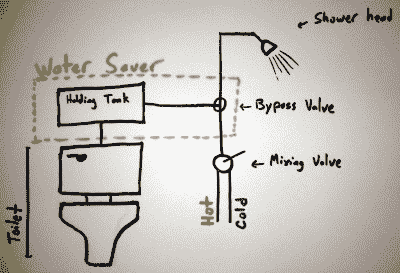 Shower head
Water Saver
Holding Tank
Bypass Valve
Mixing Valve
Toilet
Hot
Cold